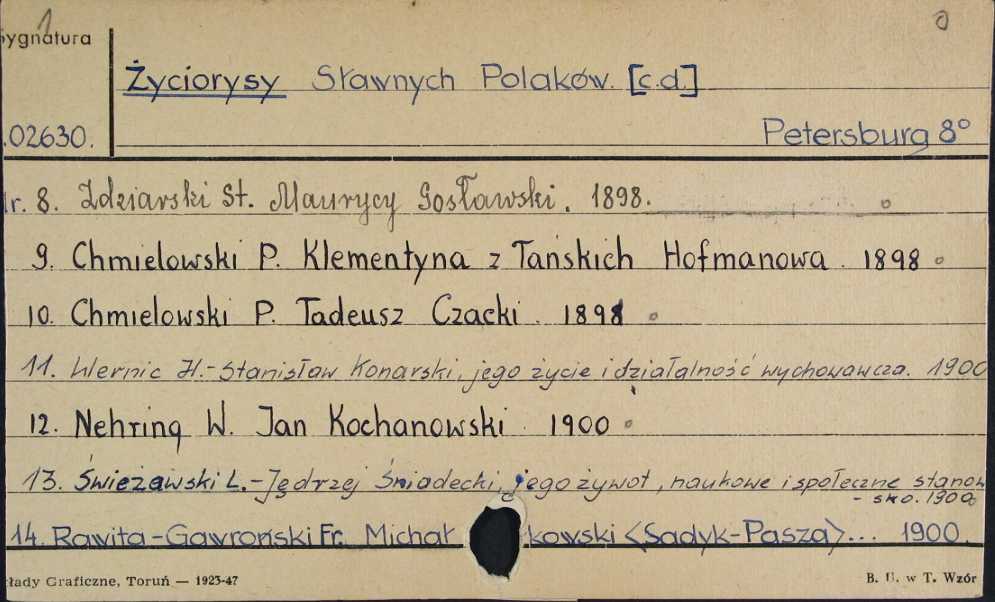 1
Sygnatura
Życiorysy Sławnych Polaków. [c.d.]
.02630.
Petersburg 8°
Nr. 8. Zdziarski St. Maurycy Gosławski. 1898.
9. Chmielowski P. Klementyna z Tańskich Hofmanowa. 1898
10. Chmielowski P. Tadeusz Czacki. 1898
11. Wernic H.-Stanisław Konarski, jego życie i działalność wychowawcza. 1900
12. Nehring W. Jan Kochanowski. 1900
13. Świeżawski L.-Jędrzej Śniadecki, jego żywot, naukowe i społeczne stanow
- sko. 1900
14. Rawita-Gawroński Fr. Michał kowski <Sadyk-Pasza>... 1900.
łady Graficzne, Toruń — 1923-47
B. U. w T. Wzór